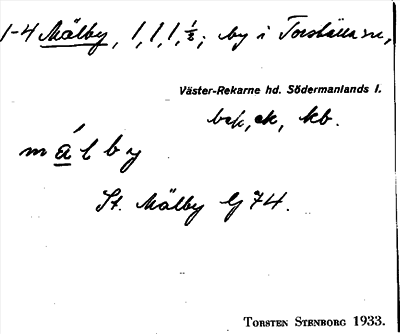 1-4 Mälby, 1, 1, 1, ⅛; by i Torshälla sn,
Väster-Rekarne hd. Södermanlands l.
bek, ek, kb.
málby
St. Mälby G 74.
TORSTEN STENBORG 1933.